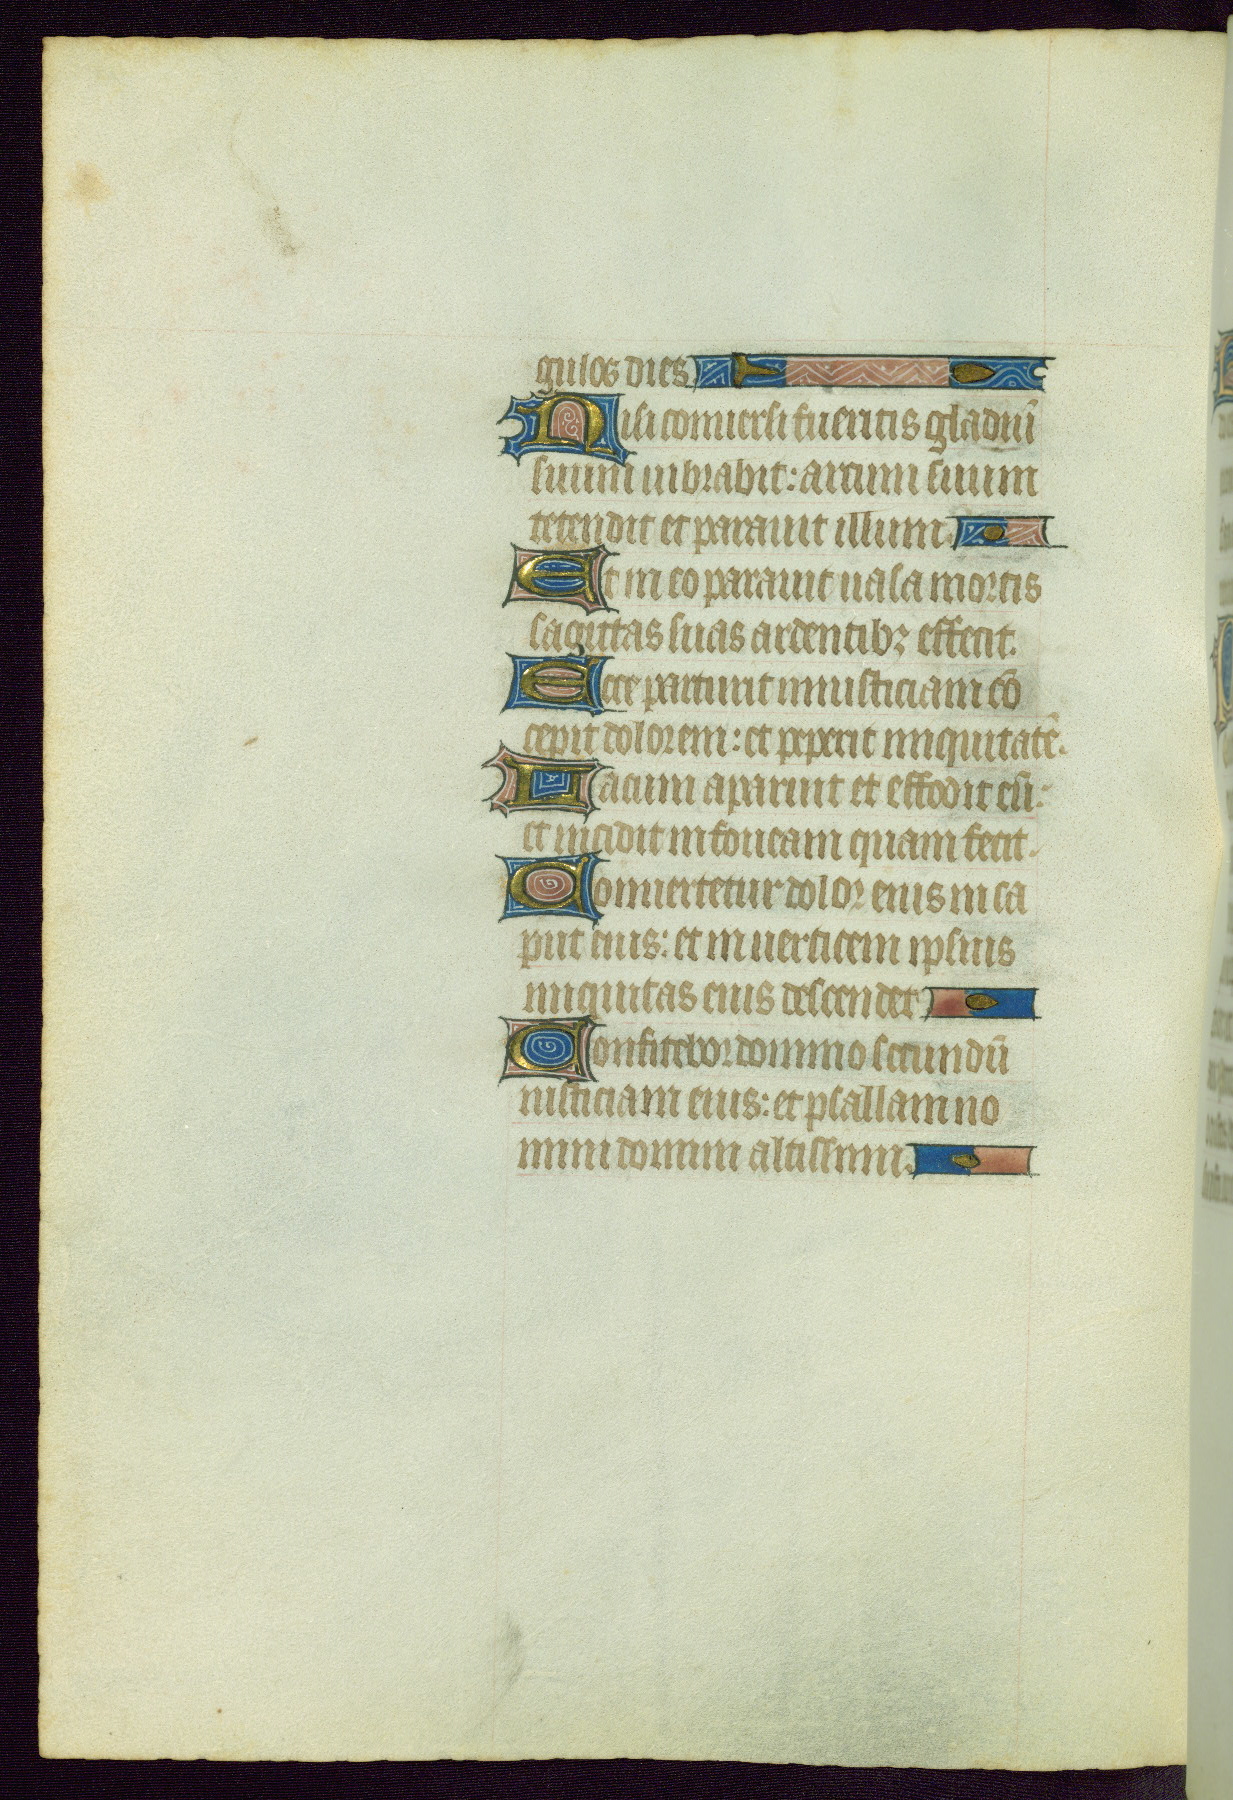 gulos dies
Nisi conuersi fueritis gladiū
suum uibrabit: arcum suum
tetendit et parauit illum.
Et in eo parauit uasa mortis
sagittas suas ardentibꝫ effecit.
Ecce parturit iniusticiam cō
cepit dolorem: et peperit iniquitatē.
Lacum aparuit et effodit eū:
et incidit in foueam quam fecit.
Conuertetur dolor eius in ca
put eius: et in uerticem ipsius
iniquitas eius descendet
Confitebor domino secundū
iusticiam eius: et psallam no
mini domini altissimi.